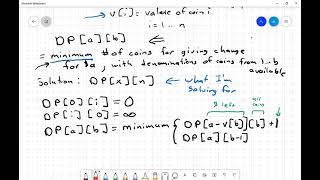 v[i] = value of coin i
i = 1...n
DP[a][b]
= minimum # of coins for giving change
for $a, with denominations of coins from 1..b
available
Solution: DP[x][n] what I'm
solving for
$ left all
coins
DP[0][i] = 0
DP[i][0] = ∞
DP[a][b] = minimum { DP[a-v[b]][b] + 1
DP[a][b-1]